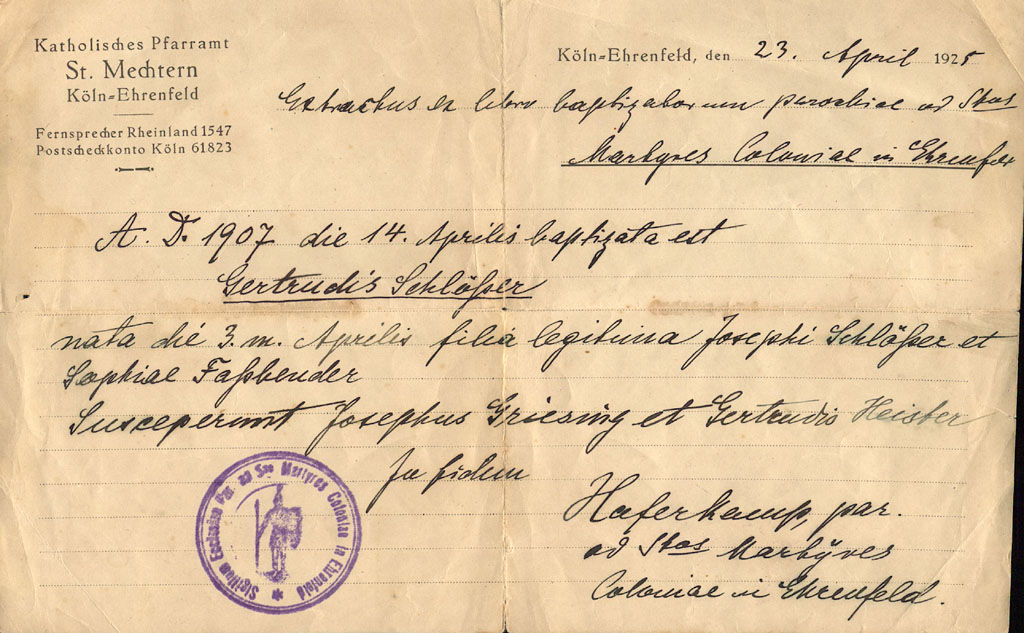 Katholisches Pfarramt
St. Mechtern
Köln=Ehrenfeld
Fernsprecher Rheinland 1547
Postscheckkonto Köln 61823
Köln=Ehrenfeld, den 23. April 1925
Extractus ex libro baptizatorum parochiae ad Stos
Martyres Coloniae in Ehrenfeld
A. D. 1907 die 14. Aprilis baptizata est
Gertrudis Schlößer
nata die 3. m. Aprilis filia legitima Josephi Schlößer et
Sophiae Faßbender
Susceperunt Josephus Griesing et Gertrudis Heister
In fidem
Haferkamp, par.
ad Stos Martyres
Coloniae in Ehrenfeld.
Sigillum Ecclesiae Par. ad Sos Martyres Coloniae in Ehrenfeld